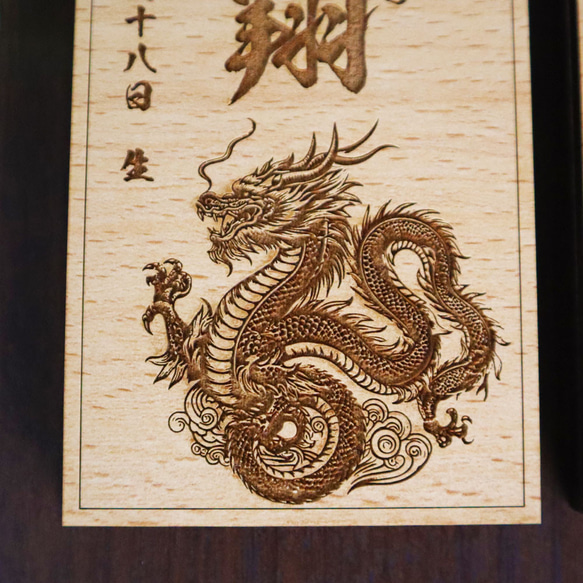 翔
十八日 生